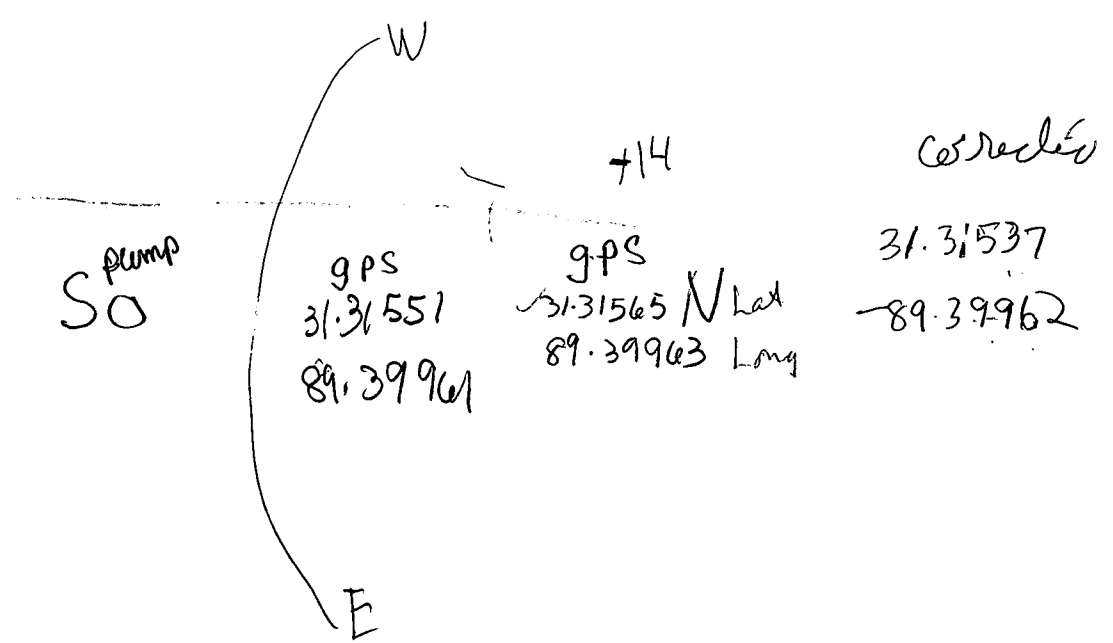 W
+14
corrected
pump
So
gps
31.31551
89.39961
gps
31.31565 N Lat
89.39963 Long
31.31537
-89.39962
E